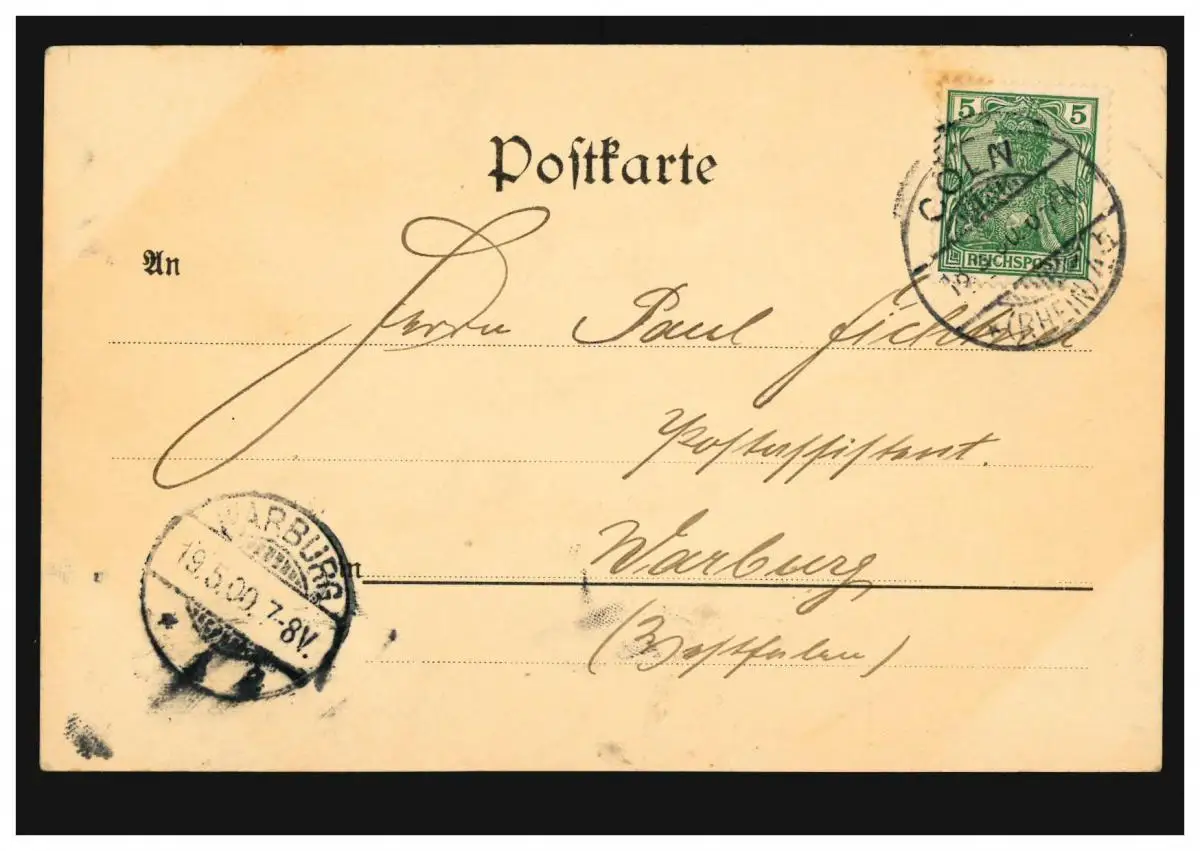 Postkarte
5 5
REICHSPOST
CÖLN
(RHEIN)
An
Herrn Paul
Postassistent.
WARBURG
19.5.00. 7-8V.
in Warburg
(Westfalen)